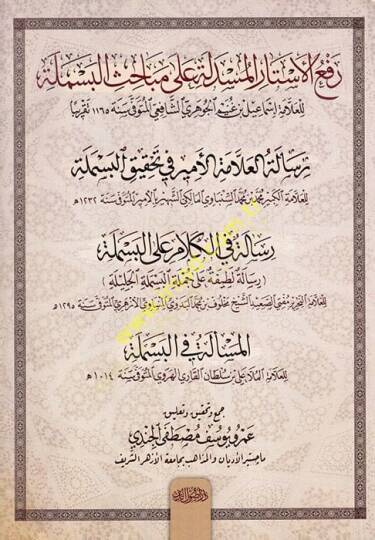 رفع الأستار المسدلة على مباحث البسملة
للعلامة إسماعيل بن غنيم الجوهري الشافعي المتوفى سنة ١١٦٥ تقريبًا
رسالة العلامة الأمير في تحقيق البسملة
للعلامة الكبير محمد بن محمد السنباوي المالكي الشهير بالأمير المتوفى سنة ١٢٣٢هـ
رسالة في الكلام على البسملة
( رسالة لطيفة على جملة البسملة الجليلة )
للعلامة النحرير مفتي الصعيد الشيخ مخلوف بن محمد البدوي المنياوي الأزهري المتوفى سنة ١٢٩٥هـ
المسألة في البسملة
للعلامة الملا علي بن سلطان القاري الهروي المتوفى سنة ١٠١٤هـ
جمع وتحقيق وتعليق
عمرو يوسف مصطفى الجندي
ماجستير الأديان والمذاهب بجامعة الأزهر الشريف